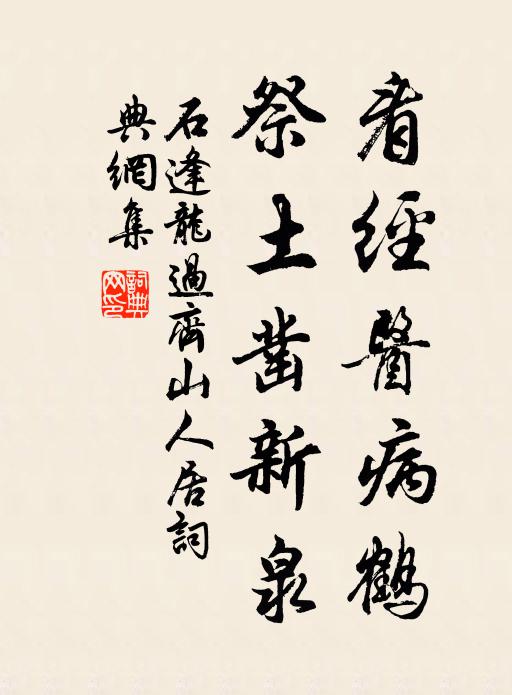 看經醫病鶴
祭土凿新泉
石逢龍過齊山人居詞
典網集
詞典网印